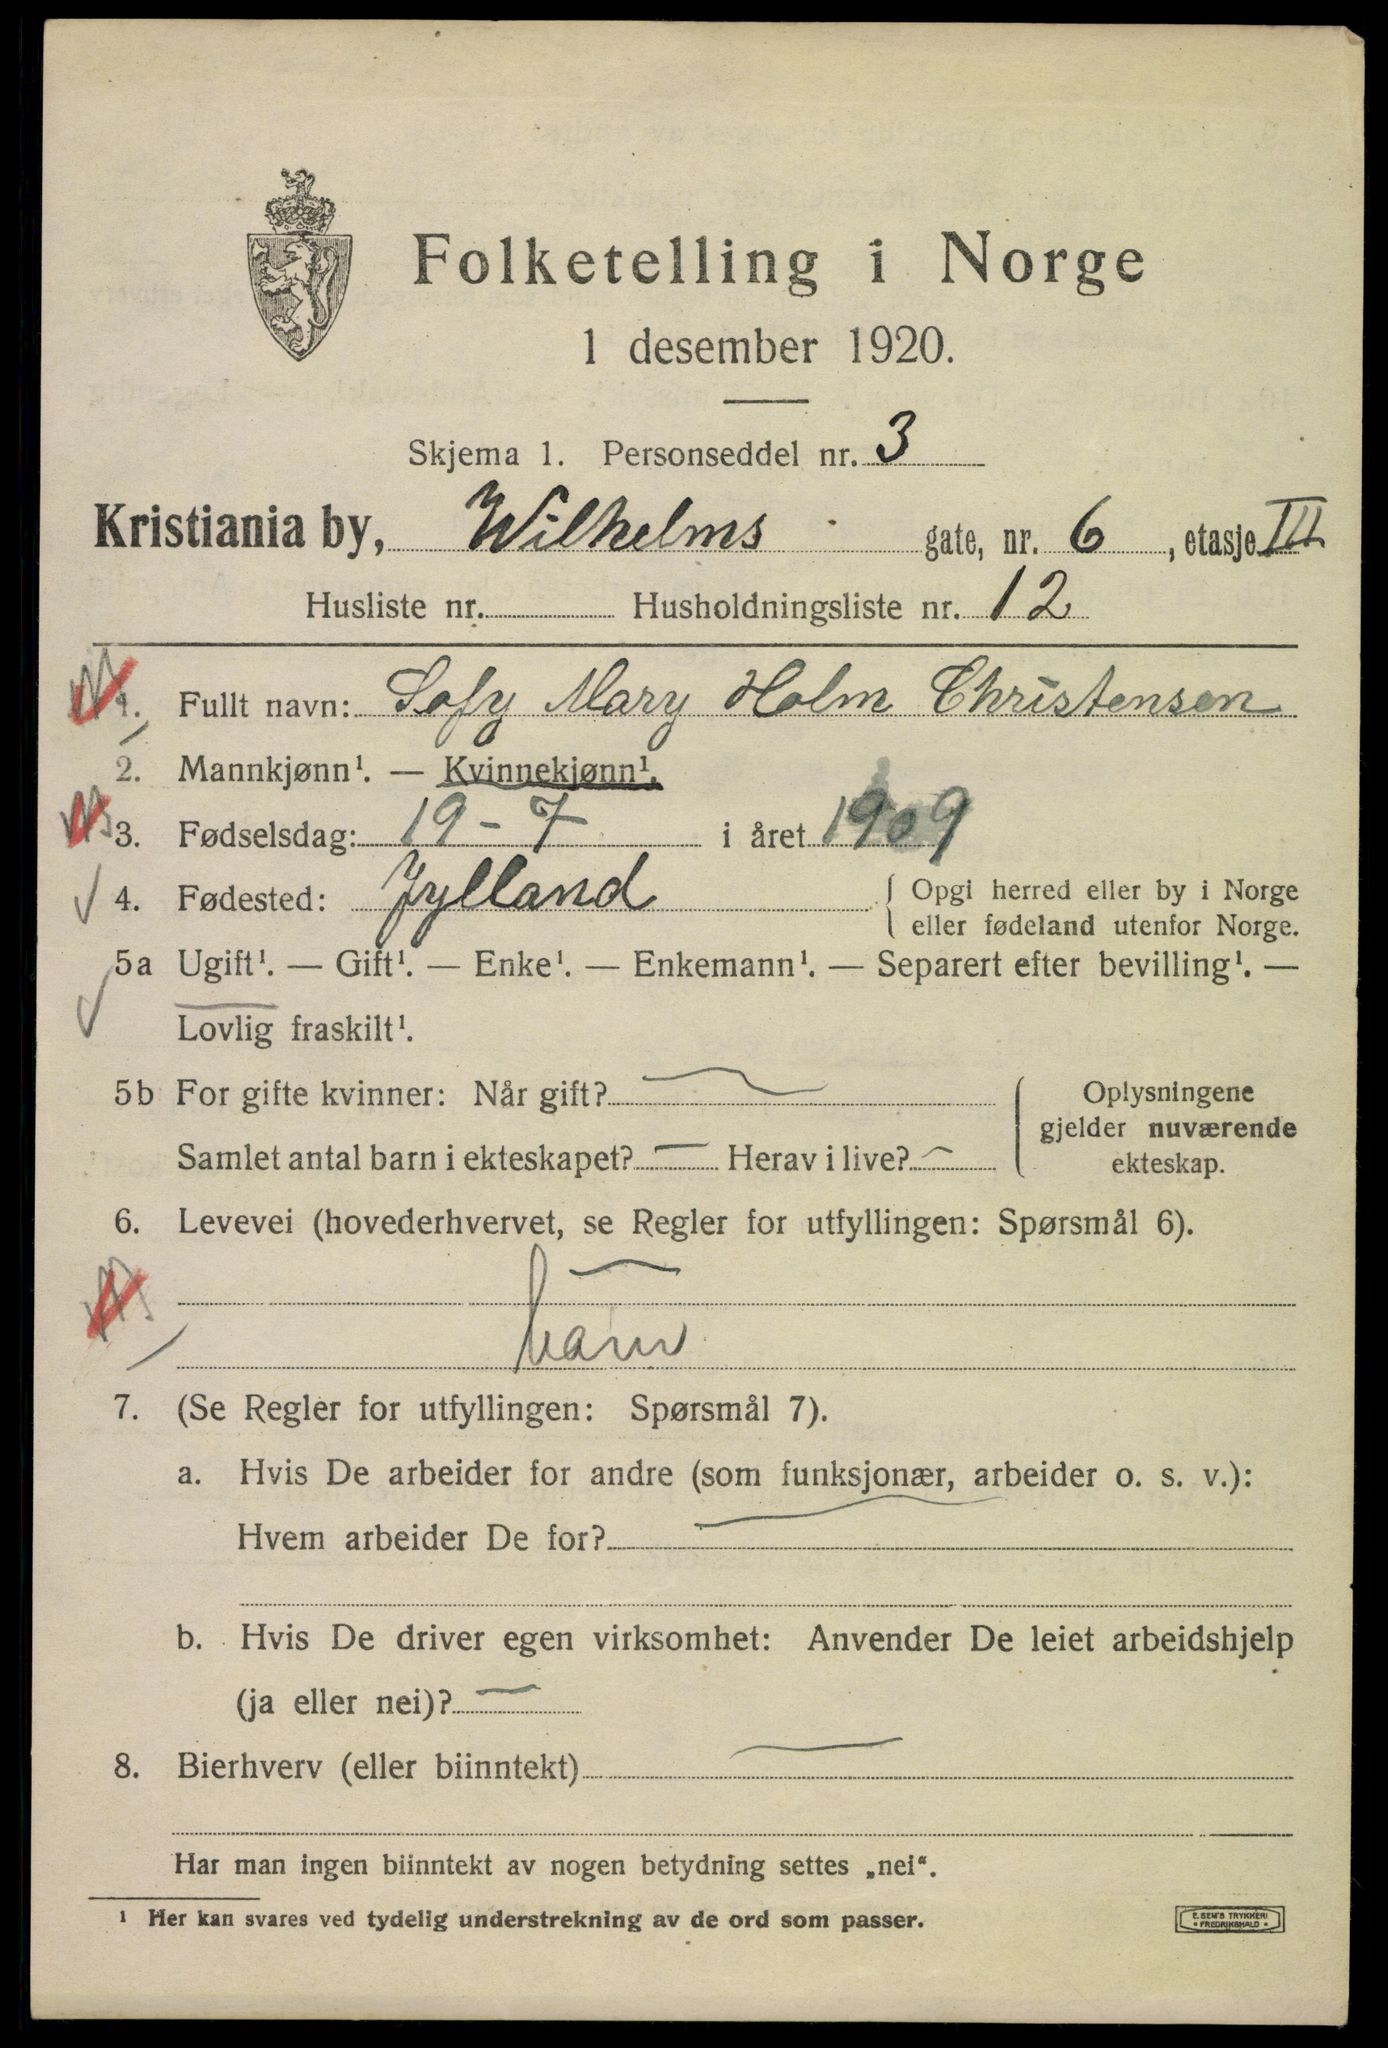 Folketelling i Norge
1 desember 1920.
Skjema 1. Personseddel nr. 3
Kristiania by, Wilhelms gate, nr. 6, etasje III
Husliste nr. Husholdningsliste nr. 12
1. Fullt navn: Sofy Mary Holm Christensen
2. Mannkjønn¹. — Kvinnekjønn¹.
3. Fødselsdag: 19 - 7 i året 1909
4. Fødested: Jylland { Opgi herred eller by i Norge
eller fødeland utenfor Norge.
5a Ugift¹. — Gift¹. — Enke¹. — Enkemann¹. — Separert efter bevilling¹. —
Lovlig fraskilt¹.
5b For gifte kvinner: Når gift? —
Samlet antal barn i ekteskapet? — Herav i live? —
Oplysningene
gjelder nuværende
ekteskap.
6. Levevei (hovederhvervet, se Regler for utfyllingen: Spørsmål 6).
—
barn
7. (Se Regler for utfyllingen: Spørsmål 7).
a. Hvis De arbeider for andre (som funksjonær, arbeider o. s. v.):
Hvem arbeider De for? —
b. Hvis De driver egen virksomhet: Anvender De leiet arbeidshjelp
(ja eller nei)? —
8. Bierhverv (eller biinntekt) —
Har man ingen biinntekt av nogen betydning settes „nei“.
¹ Her kan svares ved tydelig understrekning av de ord som passer.
E. SEM'S TRYKKERI
• FREDRIKSHALD •